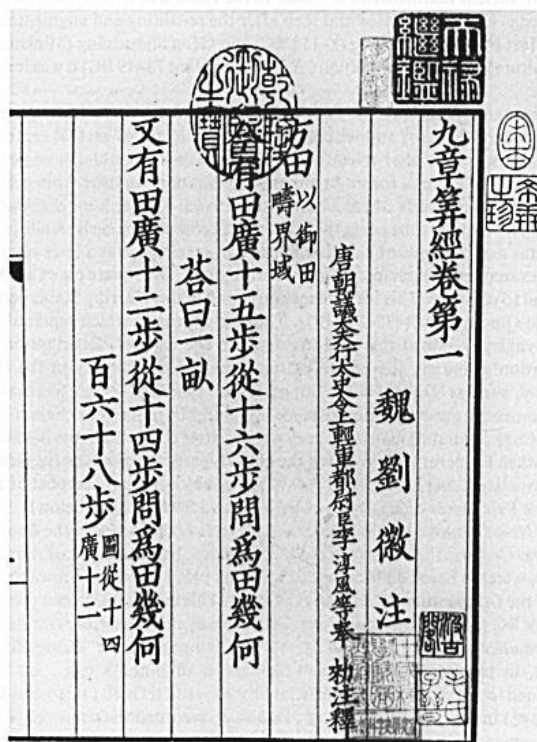 天祿繼鑑
乾隆御覽之寶
九章筭經卷第一
魏劉徽注
唐朝議大夫行太史令上輕車都尉臣李淳風等奉 勑注釋
方田 以御田
疇界域
今有田廣十五步從十六步問爲田幾何
荅曰畝
又有田廣十二步從十四步問爲田幾何
百六十八步 圖從十四
廣十二